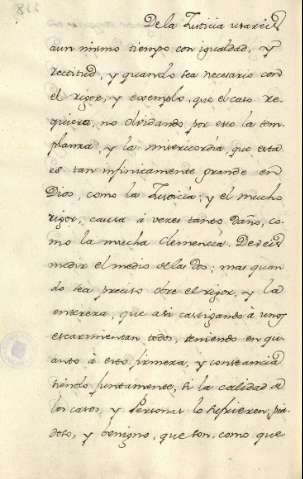 118
De la Justicia usareis
aun mismo tiempo con igualdad, y
rectitud, y quando sea necesario con
el rigor, y exemplo, que el caso re-
quiera, no olvidando por esto la tem-
planza, y la misericordia, que esta
es tan infinicamente grande en
Dios, como la Justicia; y el mucho
rigor, causa à veces tanto daño, co-
mo la mucha clemencia. Debeis
medir el medio de las dos; mas quan
do sea preciso obre el rigor, y la
entereza, que asi castigando à unos
escarmientan todos, teniendo en qu-
anto à esto firmeza, y constancia
siendo juntamente, si la calidad de
los casos, y Personas lo
y benigno, que son, como que